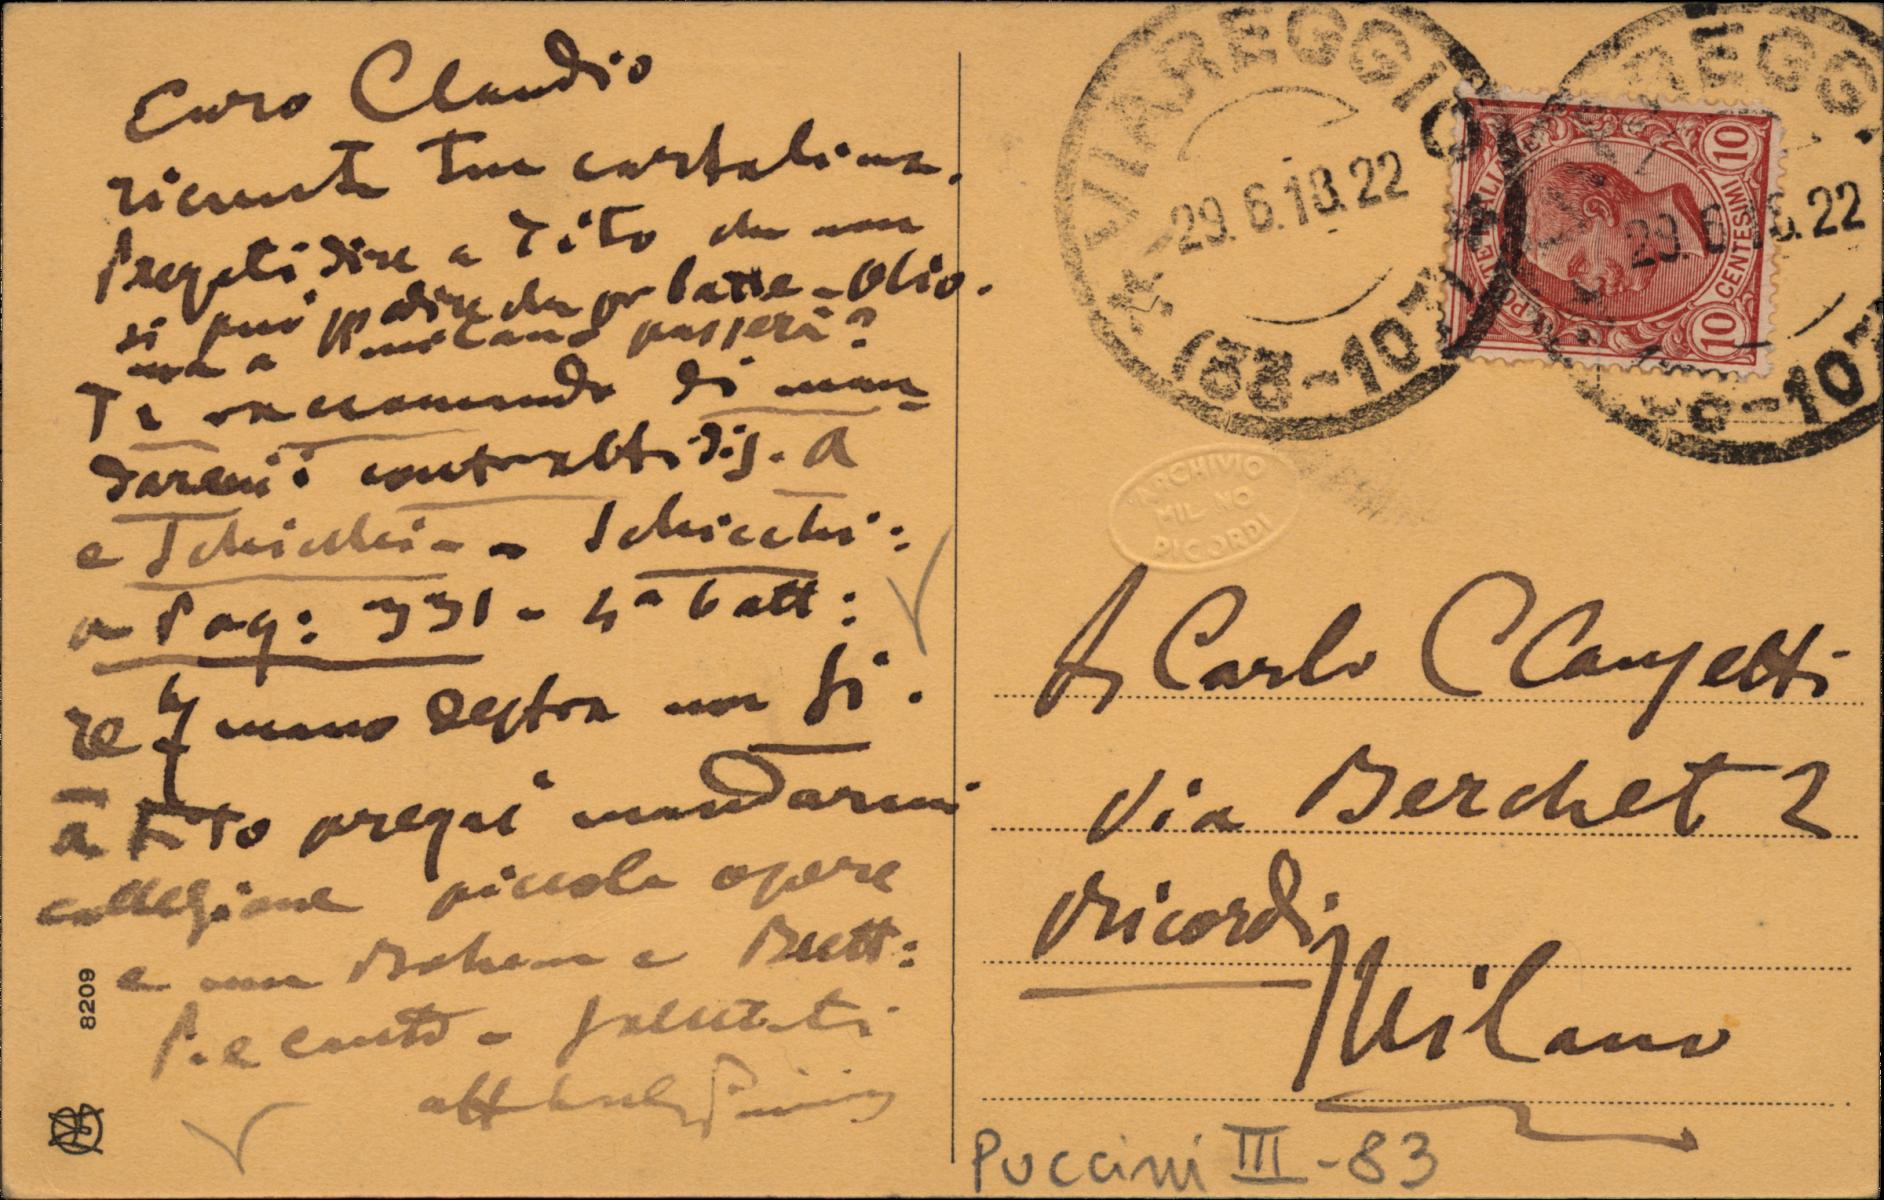 Caro Claudio
ricevuta tua cartolina.
Pregoti dire a Tito che non
si può dire che per latte - olio.
ma a Milano passerà?
Ti raccomando di man-
darmi
e Schicchi - Schicchi:
a Pag: 331 - 4ª batt:
mano destra non si.
a Tito pregai mandarmi
collezione piccole opere
e una Boheme e Butt:
P. e canto - Saluti
Puccini
8209
VIAREGGIO
29.6.18.22
VIAREGGIO
29.6.18.22
POSTE ITALIANE
10 CENTESIMI 10
ARCHIVIO
MILANO
RICORDI
A Carlo Clausetti
Via Berchet 2
Ricordi
Milano
Puccini III - 83